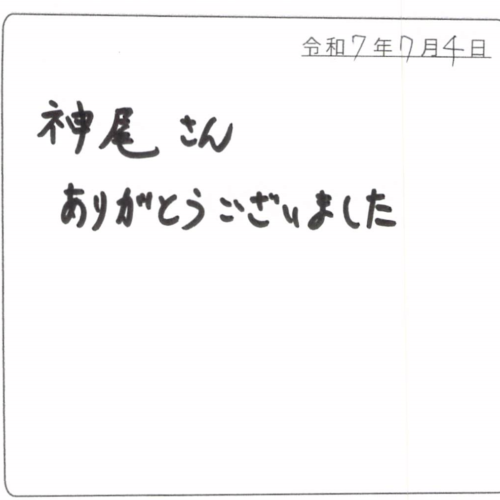 令和7年7月4日
神尾さん
ありがとうございました